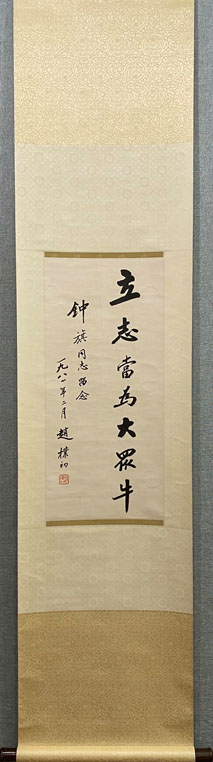 立志當為大眾牛
鈡旗同志留念
一九八一年二月 趙樸初